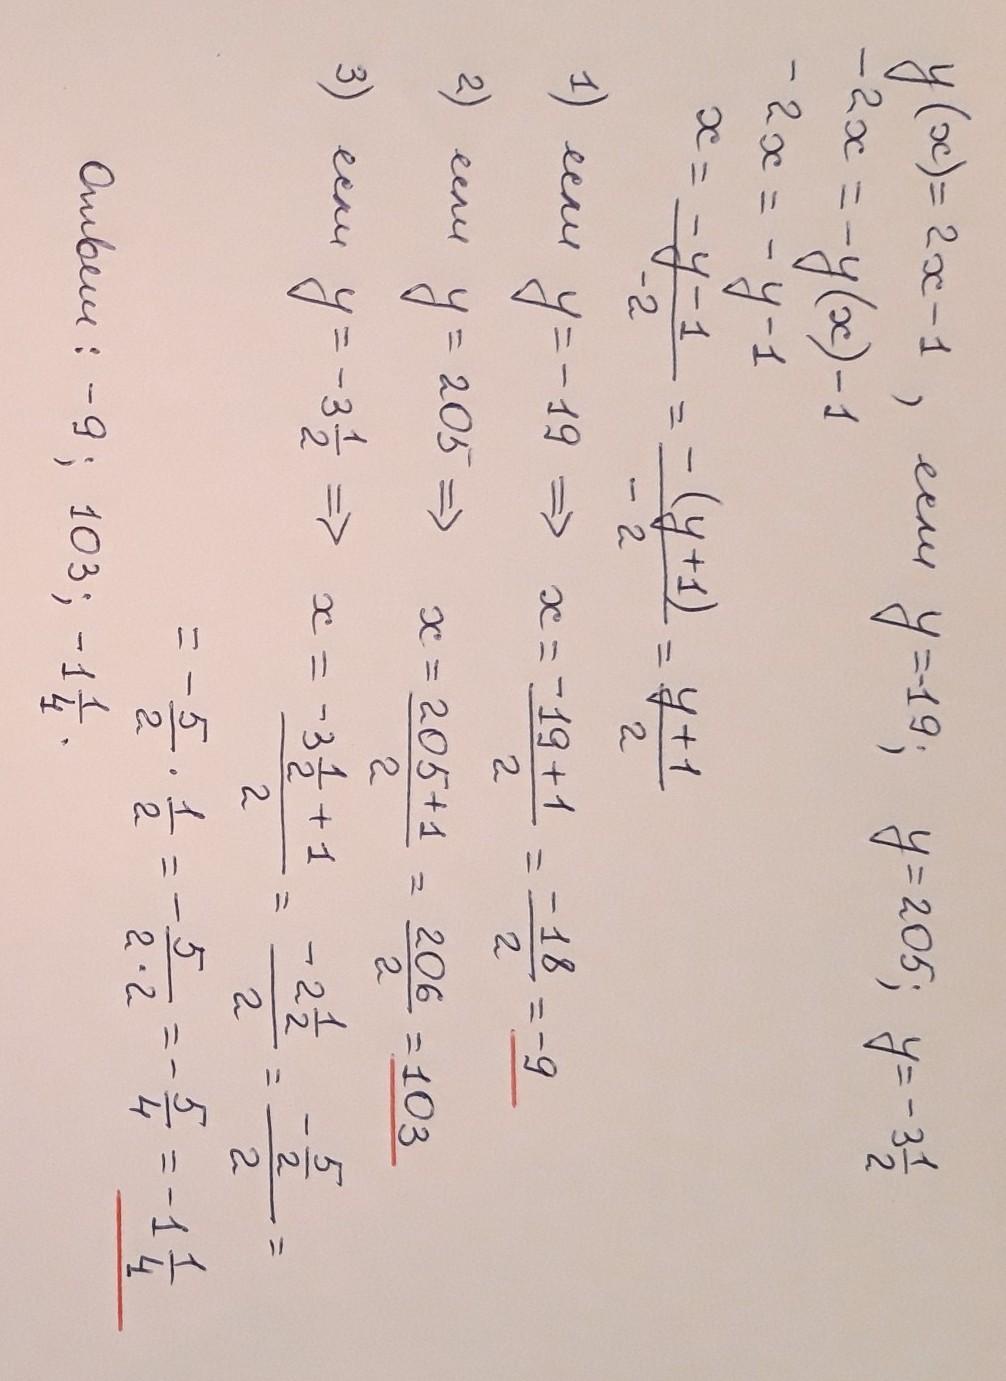 y(x)=2x-1, если y=-19; y=205; y=-3 1/2
-2x=-y(x)-1
-2x=-y-1
x=(-y-1)/(-2)=(-(y+1))/(-2)=(y+1)/2
1) если y=-19 ⇒ x=(-19+1)/2=(-18)/2=-9
2) если y=205 ⇒ x=(205+1)/2=206/2=103
3) если y=-3 1/2 ⇒ x=(-3 1/2+1)/2=(-2 1/2)/2=(-5/2)/2=
=-5/2·1/2=-5/(2·2)=-5/4=-1 1/4
Ответ: -9; 103; -1 1/4.